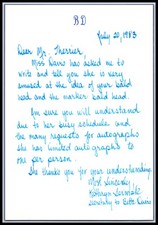 BD
July 20, 1983
Dear Mr. Therrier,
Miss Davis has asked me to
write and tell you she is very
amused at the idea of your bald
head and the marker bald head.
I'm sure you will understand
due to her busy schedule and
the many requests for autographs
she has limited autographs to
one per person.
She thanks you for your understanding.
Most Sincerely,
Kathryn Sermak
Secretary to Bette Davis